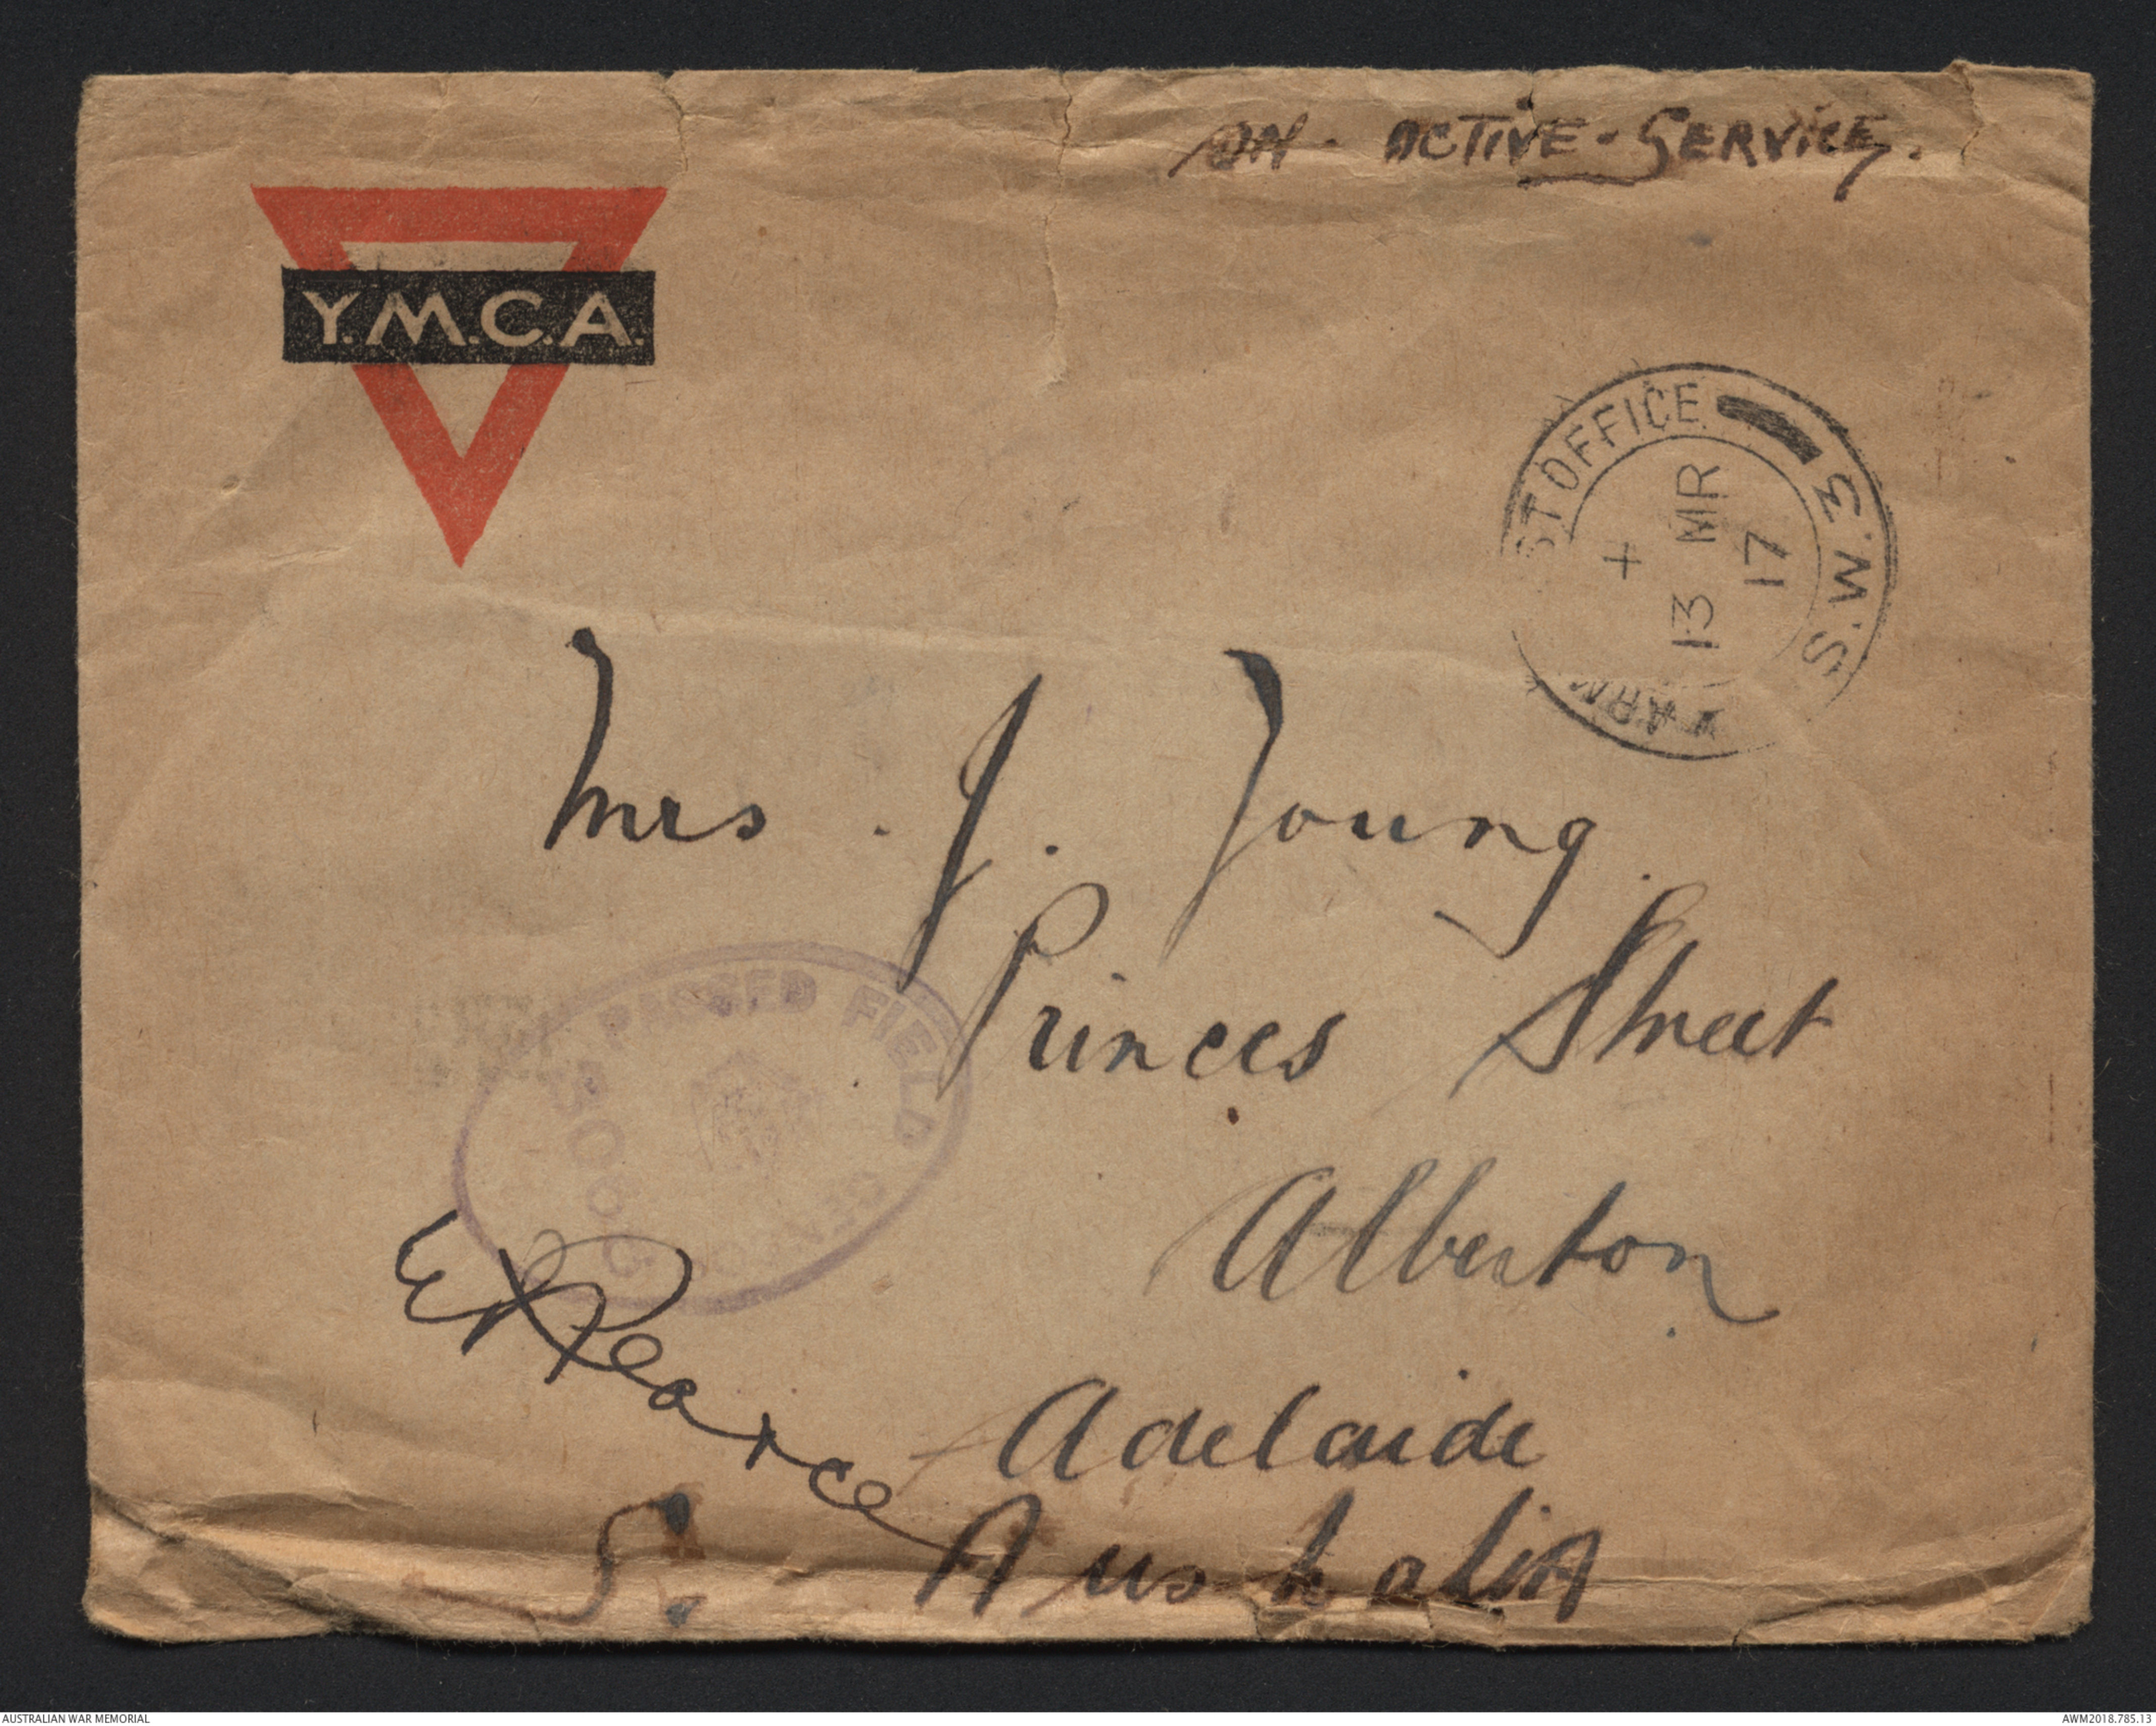 ON · ACTIVE - SERVICE.
Y.M.C.A.
ARMY POST OFFICE
S.W.3
+
13 MR
17
Mrs. J. Young.
Princes Street
PASSED FIELD
Alberton
E Pearce
Adelaide
S. Australia
AUSTRALIAN WAR MEMORIAL
AWM2018.785.13